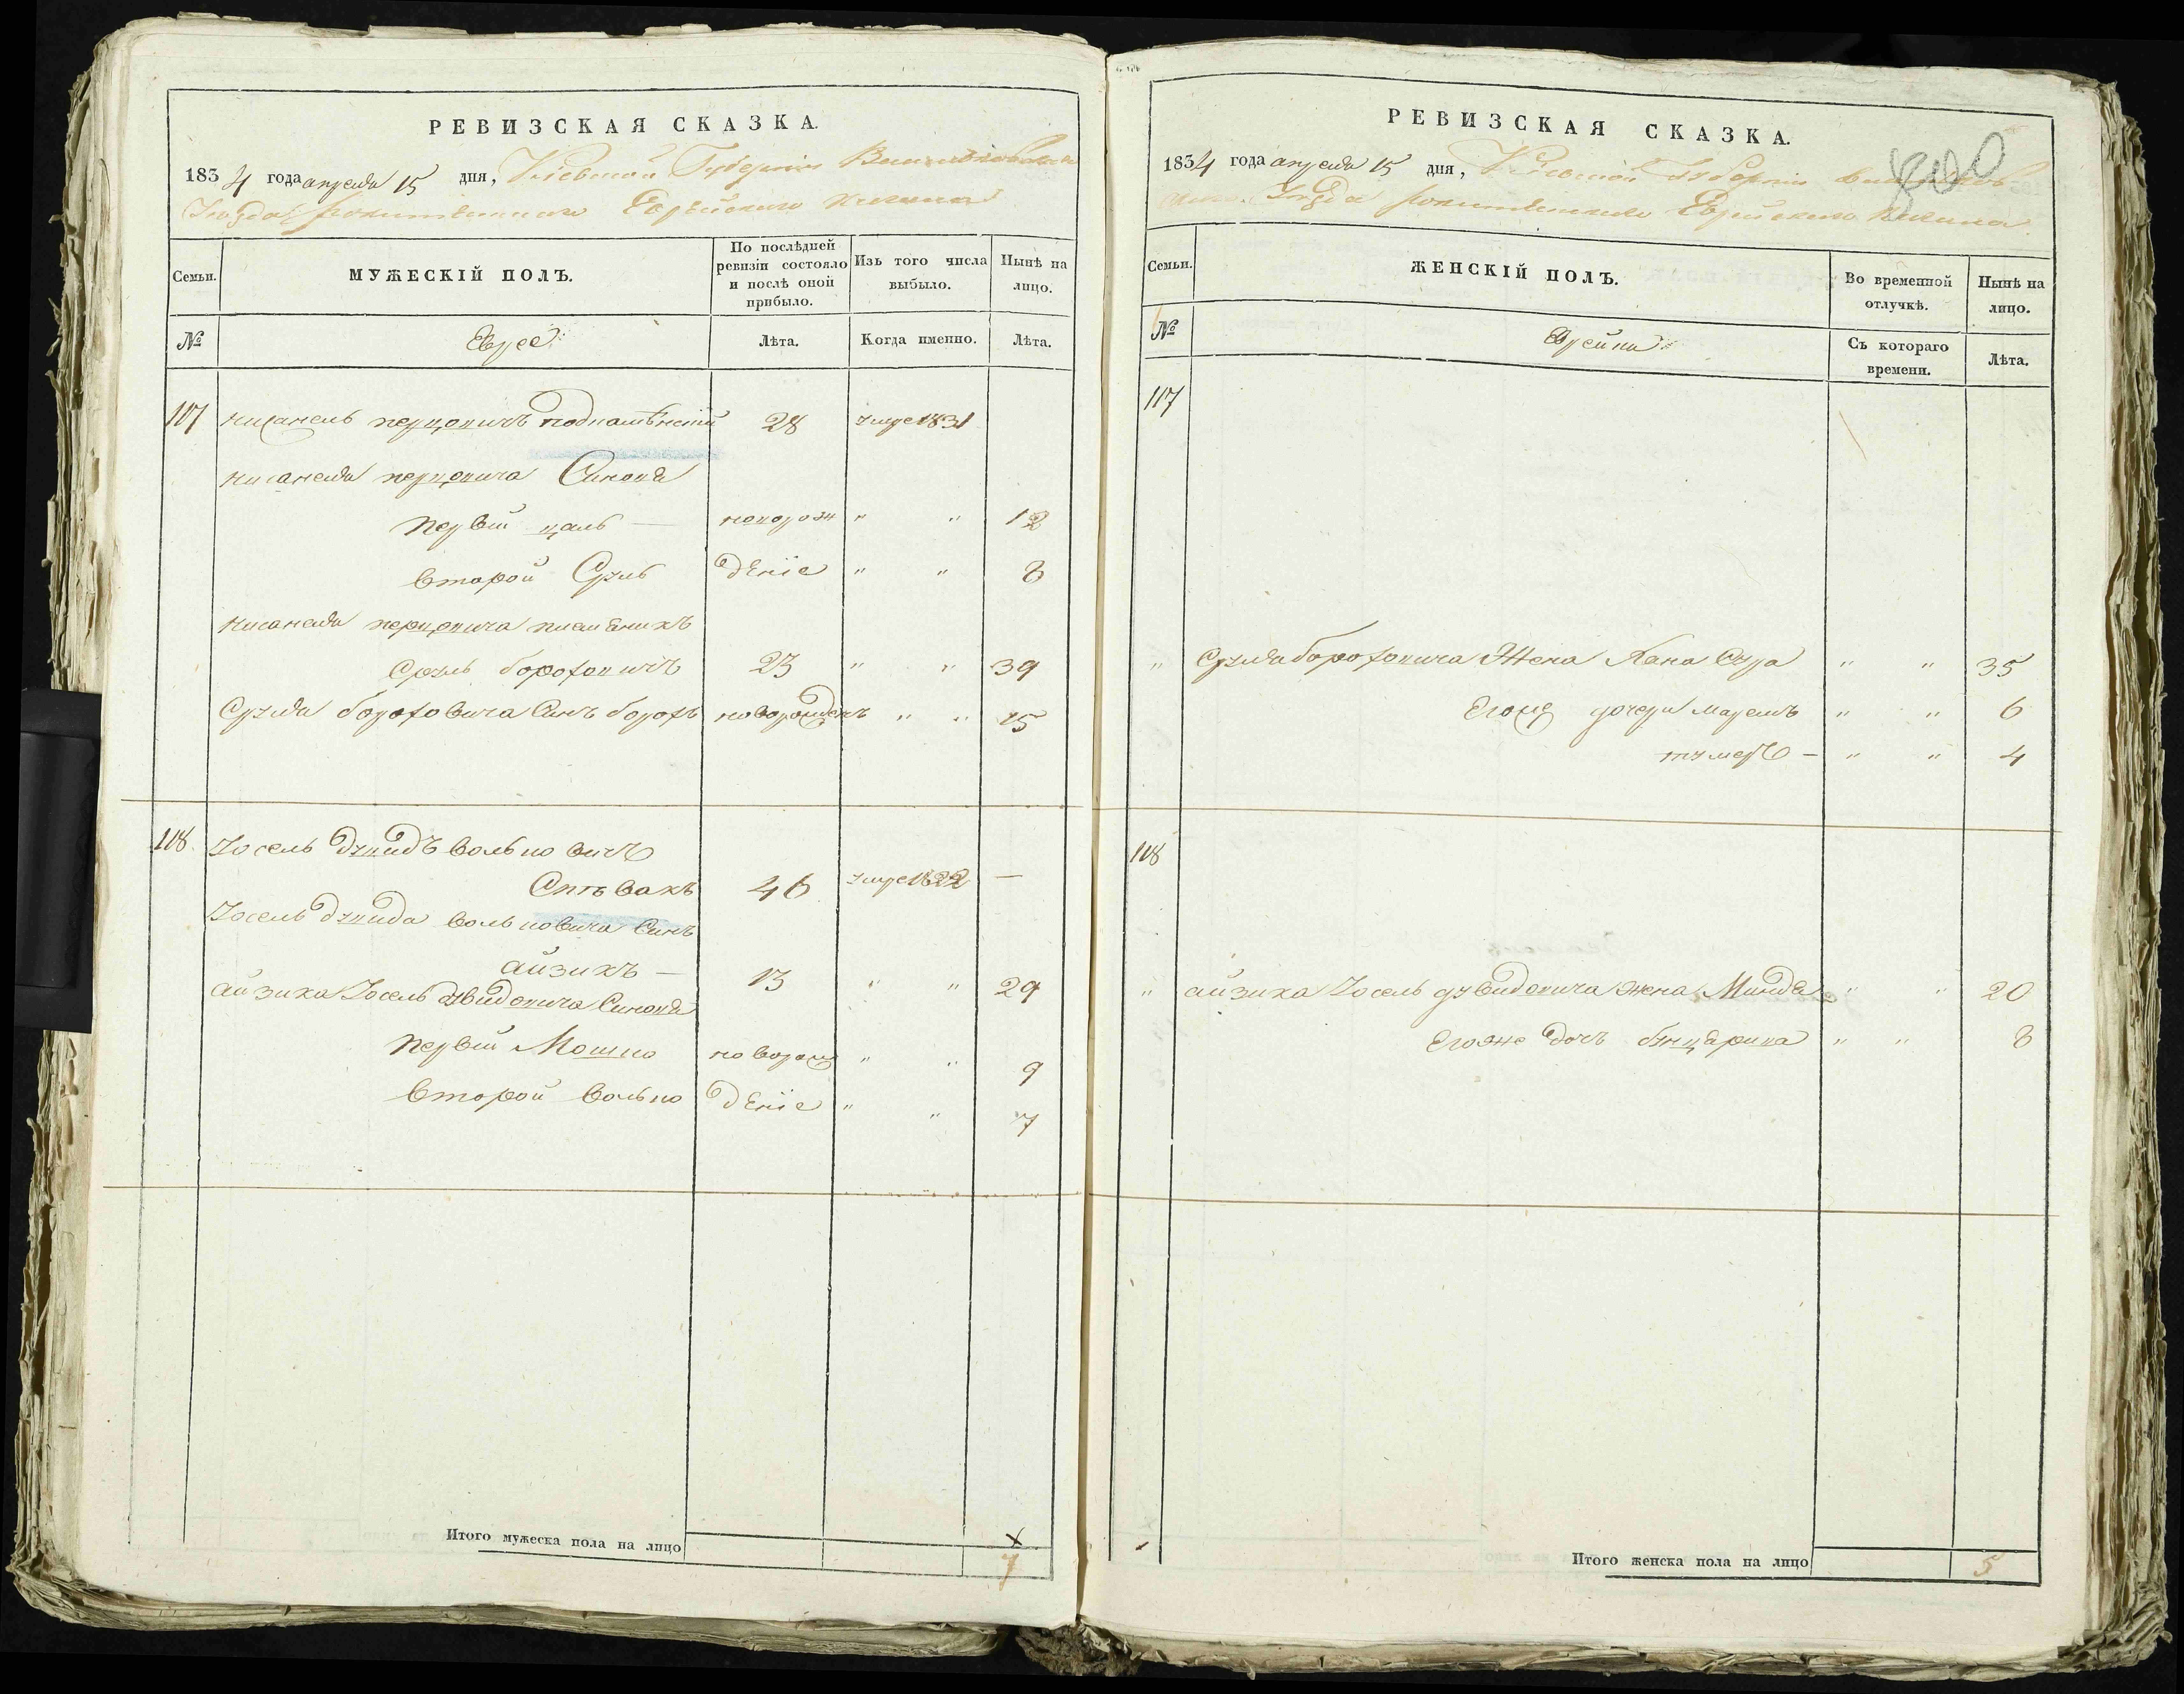 РЕВИЗСКАЯ СКАЗКА.
1834 года апреля 15 дня, Киевской Губернии
Уезда Еврейского кагала
Семьи. МУЖЕСКІЙ ПОЛЪ. По послѣдней ревизіи состояло и послѣ оной прибыло. Изъ того числа выбыло. Нынѣ на лицо.
№ Еврее Лѣта. Когда именно. Лѣта.
107 нисанель перцовичъ 28 умре 1831
нисанеля перцовича Синовя
первій цаль — новорож " " 12
второй Срuль деніе " " 8
нисанеля перцовича племеникъ
Сруль борохович 23 " " 39
Сруля бороховича Синъ борохъ новорожденъ " " 15
108 Іосель дувидъ вольковичъ
Співакъ 46 умре 1822 —
Іосель дувида вольковича Синъ
айзикъ — 13 " " 29
айзика Іосель дувидовича Синовя
первій Мошко новорож " " 9
второй волько деніе " " 7
Итого мужеска пола на лицо 7
РЕВИЗСКАЯ СКАЗКА.
800
1834 года апреля 15 дня, Кіевской Губерніи
Уезда Еврейского кагала
Семьи. ЖЕНСКІЙ ПОЛЪ. Во временной отлучкѣ. Нынѣ на лицо.
№ Еврейки Съ котораго времени. Лѣта.
107
" Сруля бороховича Жена Хана Сура " " 35
Егоже дочери " " 6
— " " 4
108
" айзика Іосель дувидовича жена Миндя " " 20
Егояже дочъ " " 8
Итого женска пола на лицо 5